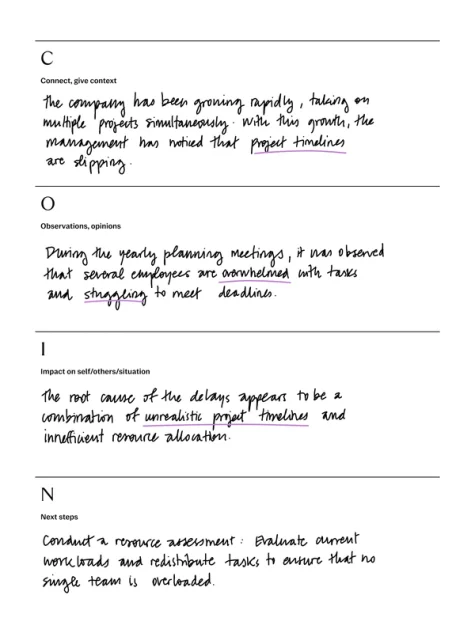 C
Connect, give context
The company has been growing rapidly, taking on
multiple projects simultaneously. With this growth, the
management has noticed that project timelines
are slipping.
O
Observations, opinions
During the yearly planning meetings, it was observed
that several employees are overwhelmed with tasks
and struggling to meet deadlines.
I
Impact on self/others/situation
The root cause of the delays appears to be a
combination of unrealistic project timelines and
innefficient resource allocation.
N
Next steps
Conduct a resource assessment: Evaluate current
workloads and redistribute tasks to ensure that no
single team is overloaded.